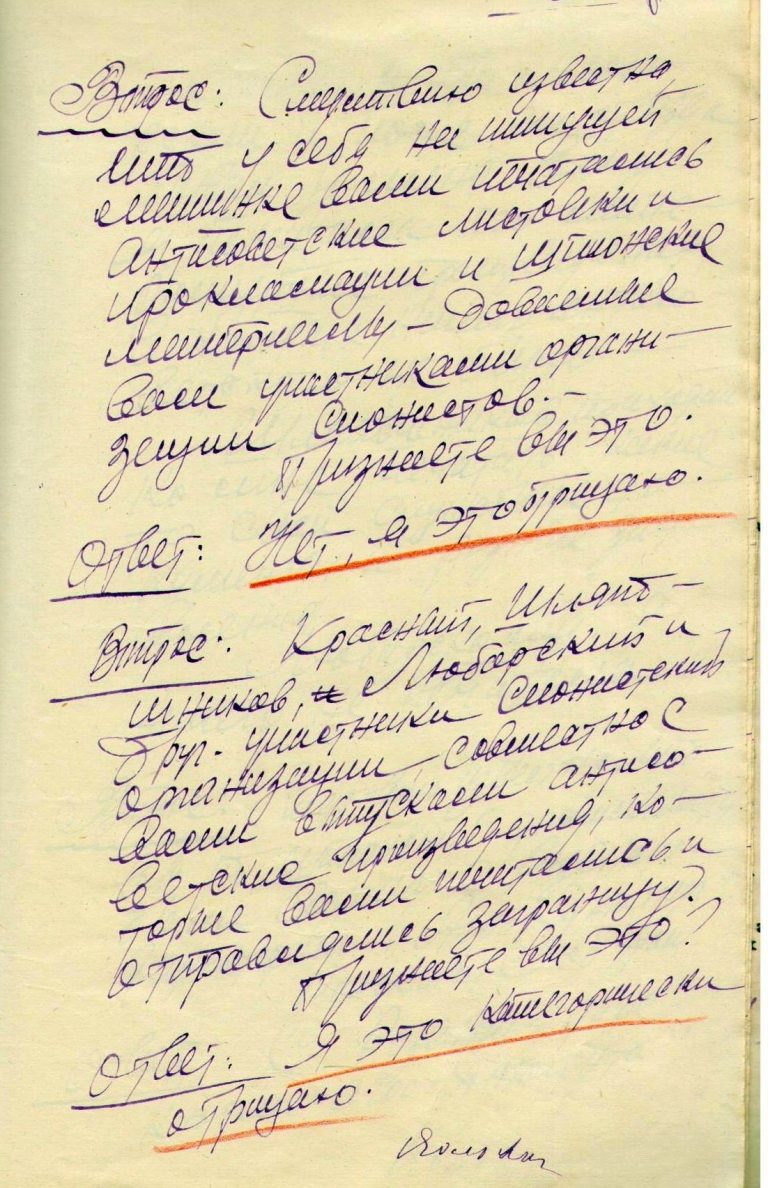 Вопрос: Следствию известно,
что у себя на пишущей
машинке вами печатались
антисоветские листовки и
прокламации и шпионские
материалы — даваемые
вам участниками органи-
зации сионистов. —
Признаете вы это.
Ответ: Нет, я это отрицаю.
Вопрос: Краснит, Шляпо-
шников, и Любарский и
друг. участники сионистской
организации, совместно с
вами выпускали антисо-
ветские произведения, ко-
торые вами печатались и
отправлялись заграницу.
Признаете вы это?
Ответ: Я это категорически
отрицаю.